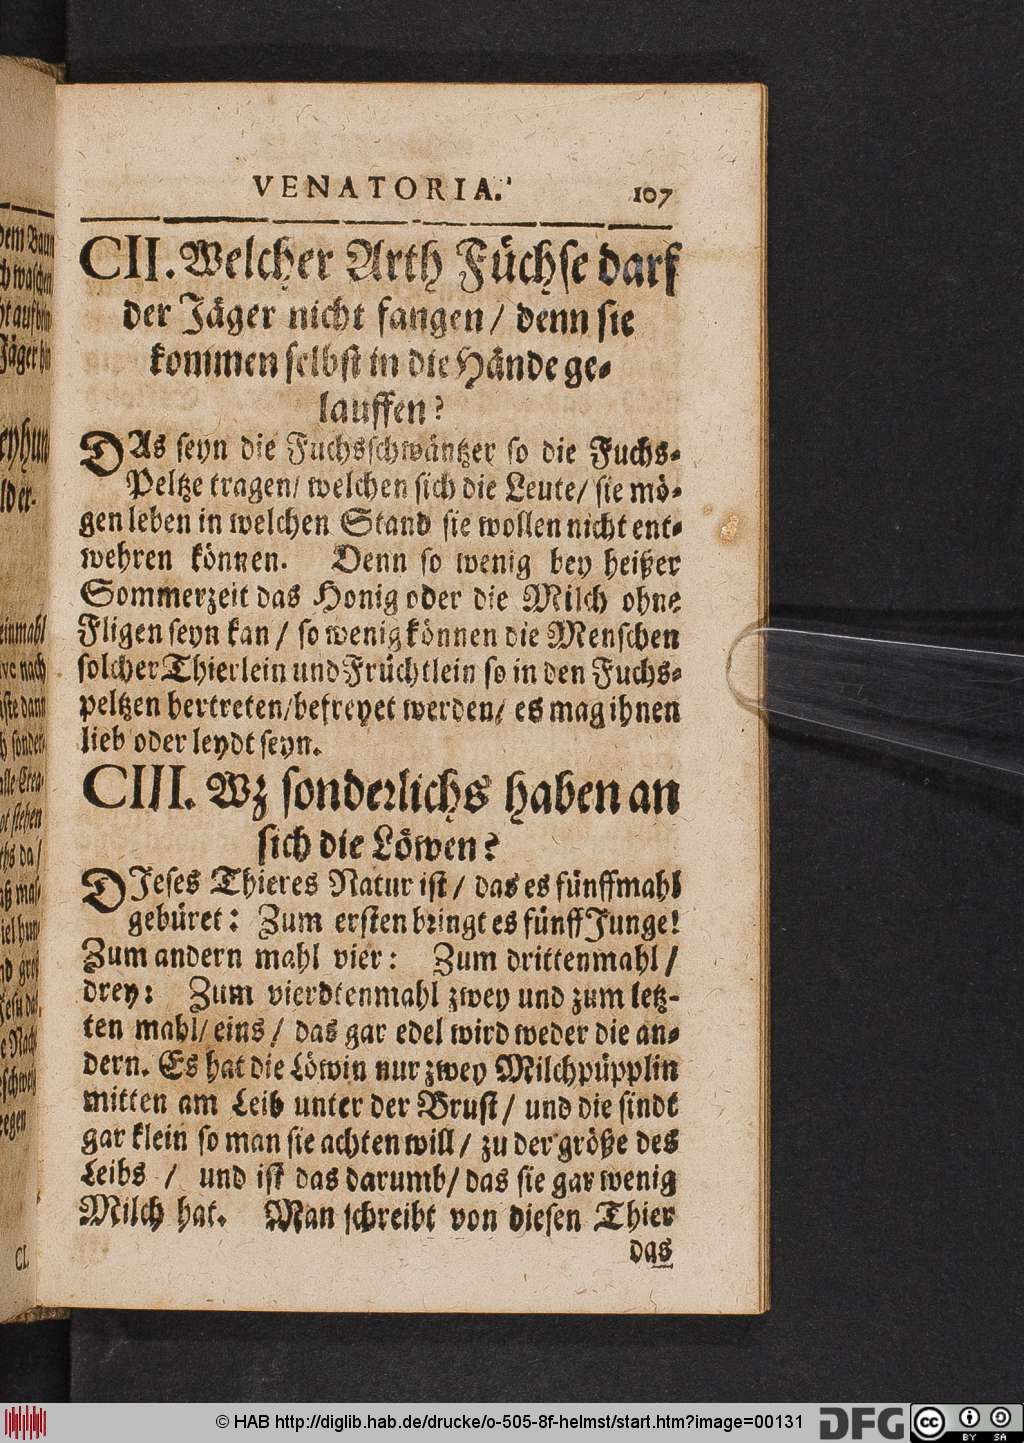 VENATORIA. 107
CII. Welcher Arth Füchse darf
der Jäger nicht fangen / denn sie
kommen selbst in die Hände ge-
lauffen?
DAs seyn die Fuchsschwäntzer so die Fuchs-
Peltze tragen / welchen sich die Leute / sie mö-
gen leben in welchen Stand sie wollen nicht ent-
wehren können. Denn so wenig bey heißer
Sommerzeit das Honig oder die Milch ohne
Fligen seyn kan / so wenig können die Menschen
solcher Thierlein und Früchtlein so in den Fuchs-
peltzen hertreten / befreyet werden / es mag ihnen
lieb oder leydt seyn.
CIII. Wz sonderlichs haben an
sich die Löwen?
DJeses Thieres Natur ist / das es fünffmahl
gebüret: Zum ersten bringt es fünff Junge!
Zum andern mahl vier: Zum drittenmahl /
drey: Zum vierdtenmahl zwey und zum letz-
ten mahl / eins / das gar edel wird weder die an-
dern. Es hat die Löwin nur zwey Milchpüpplin
mitten am Leib unter der Brust / und die sindt
gar klein so man sie achten will / zu der größe des
Leibs / und ist das darumb / das sie gar wenig
Milch hat. Man schreibt von diesen Thier
das
© HAB http://diglib.hab.de/drucke/o-505-8f-helmst/start.htm?image=00131
DFG
cc BY SA